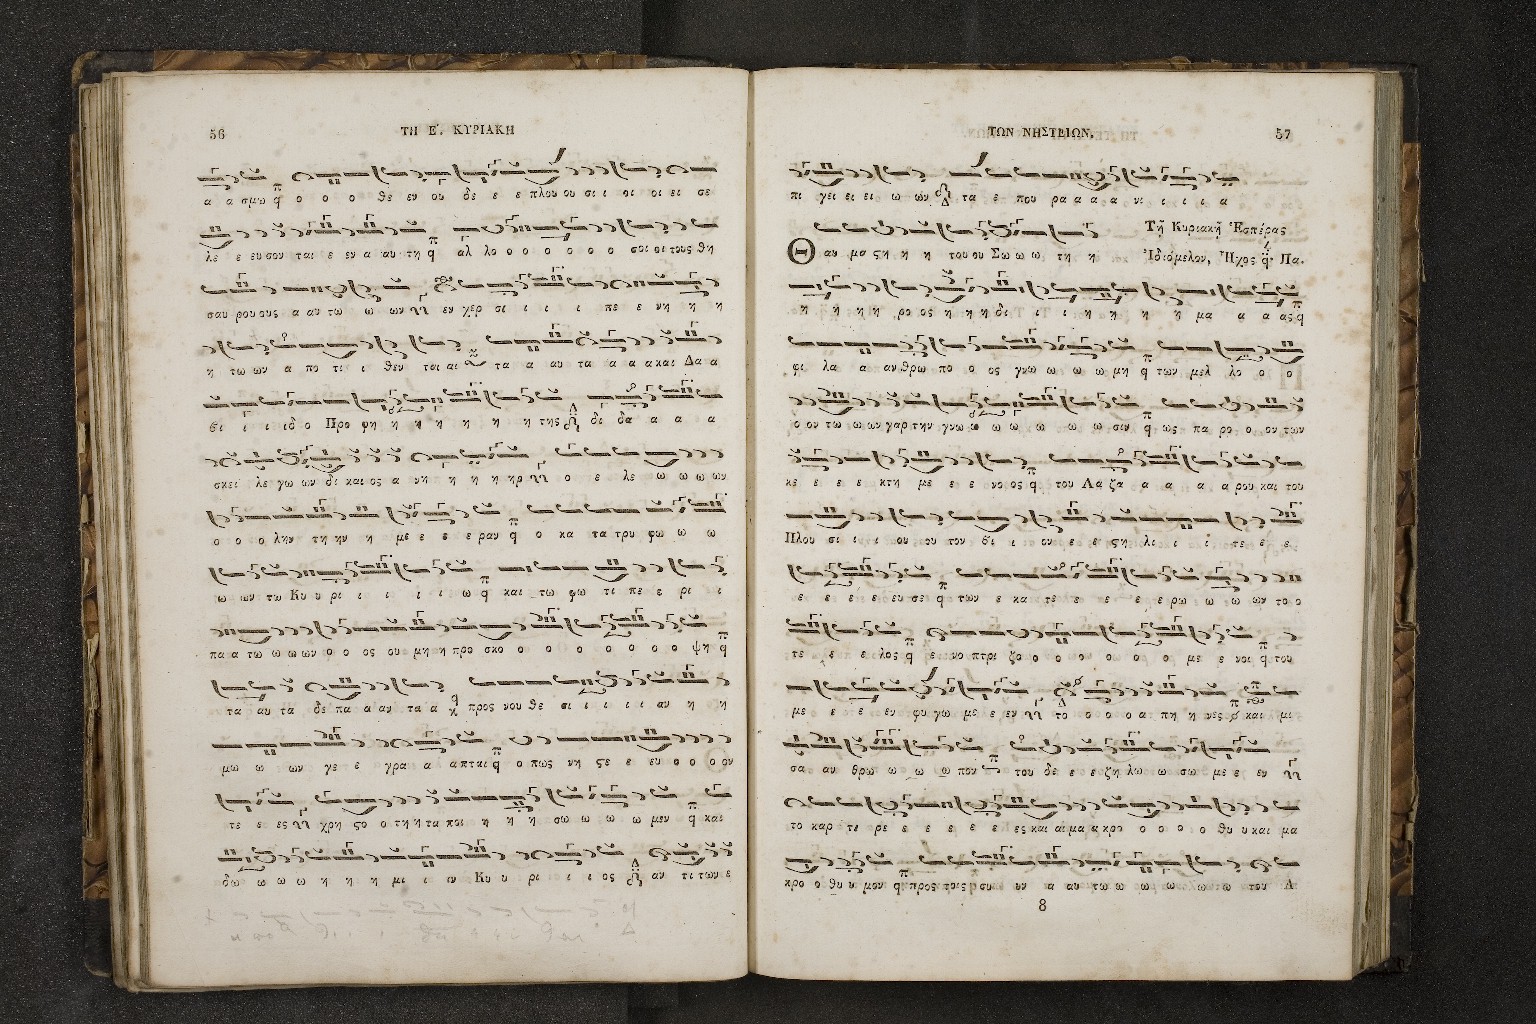 56
ΤΗ Ε΄. ΚΥΡΙΑΚΗ
α α σμω ο ο ο θε εν ου δε ε ε πλου ου σι ι οι οι ει σε
λε ε ευ σον ται ε εν α αυ τη αλ λο ο ο ο ο ο ο σοι οι τους θη
σαυ ρου ους α αυ τω ω ων εν χερ σι ι ι ι πε ε νη η η
η τω ων α πο τι ι θεν ται αι τα α αυ τα α α α και Δα α
βι ι ι ι δ ο Προ φη η η η η η η της δι δα α α α
σκει λε γω ων δι και ος α νη η η η ηρ ο ε λε ω ω ω ων
ο ο ο λην τη ην η με ε ε ε ραν ο κα τα τρυ φω ω ω
ω ων τω Κυ υ ρι ι ι ι ι ω και τω φω τι πε ε ρι ι
πα α τω ω ω ων ο ο ος ου μη η προ σκο ο ο ο ο ο ο ο ψη
τα αυ τα δε πα α αν τα α προς νου θε σι ι ι ι ι αν η η
μω ω ων γε ε γρα α α απται ο πως νη ςε ε ευ ο ο ο ον
τε ε ες χρη ςο ο τη η τα ποι η η η σω ω ω ω μεν και
δω ω ω ω η η η μι ι ιν Κυ υ ρι ι ι ος αν τι των ε
ΤΩΝ ΝΗΣΤΕΙΩΝ.
57
πι γει ει ει ω ων τα ε που ρα α α α νι ι ι ι α
Τῇ Κυριακῇ Ἑσπέρας
Θ αυ μα ςη η η του ου Σω ω ω τη η Ἰδιόμελον, Ἦχος Πα.
η η η η ρο ος η η η δι ι ι η η η η μα α α ας
φι λα α αν θρω πο ο ος γνω ω ω ω ω μη των μελ λο ο ο
ο ον τω ω ων γαρ την γνω ω ω ω ω ω ω σιν ως πα ρο ο ον των
κε ε ε ε κτη με ε ε νο ος του Λα ζα α α α α ρου και του
Πλου σι ι ι ου ου τον βι ι ον ε ε ςη λι ι ι τε ε ε
ε ε ε ε ευ σε των ε κα τε ε ε ε ε ρω ω ω ων το ο
τε ε ε λος ε νο πτρι ζο ο ο ο ο ο ο ο με ε νοι του
με ε ε εν φυ γω με ε εν το ο ο ο α πη η νες και μι
σα αν θρω ω ω ω πον του δε ε ε ζη λω ω σω με ε εν
το καρ τε ρε ε ε ε ε ε ες και αι μα α κρο ο ο ο θυ υ και μα
κρο ο θυ υ μον προς τοις συ υν α αυ τω ω ω ω ω ω του Α
8